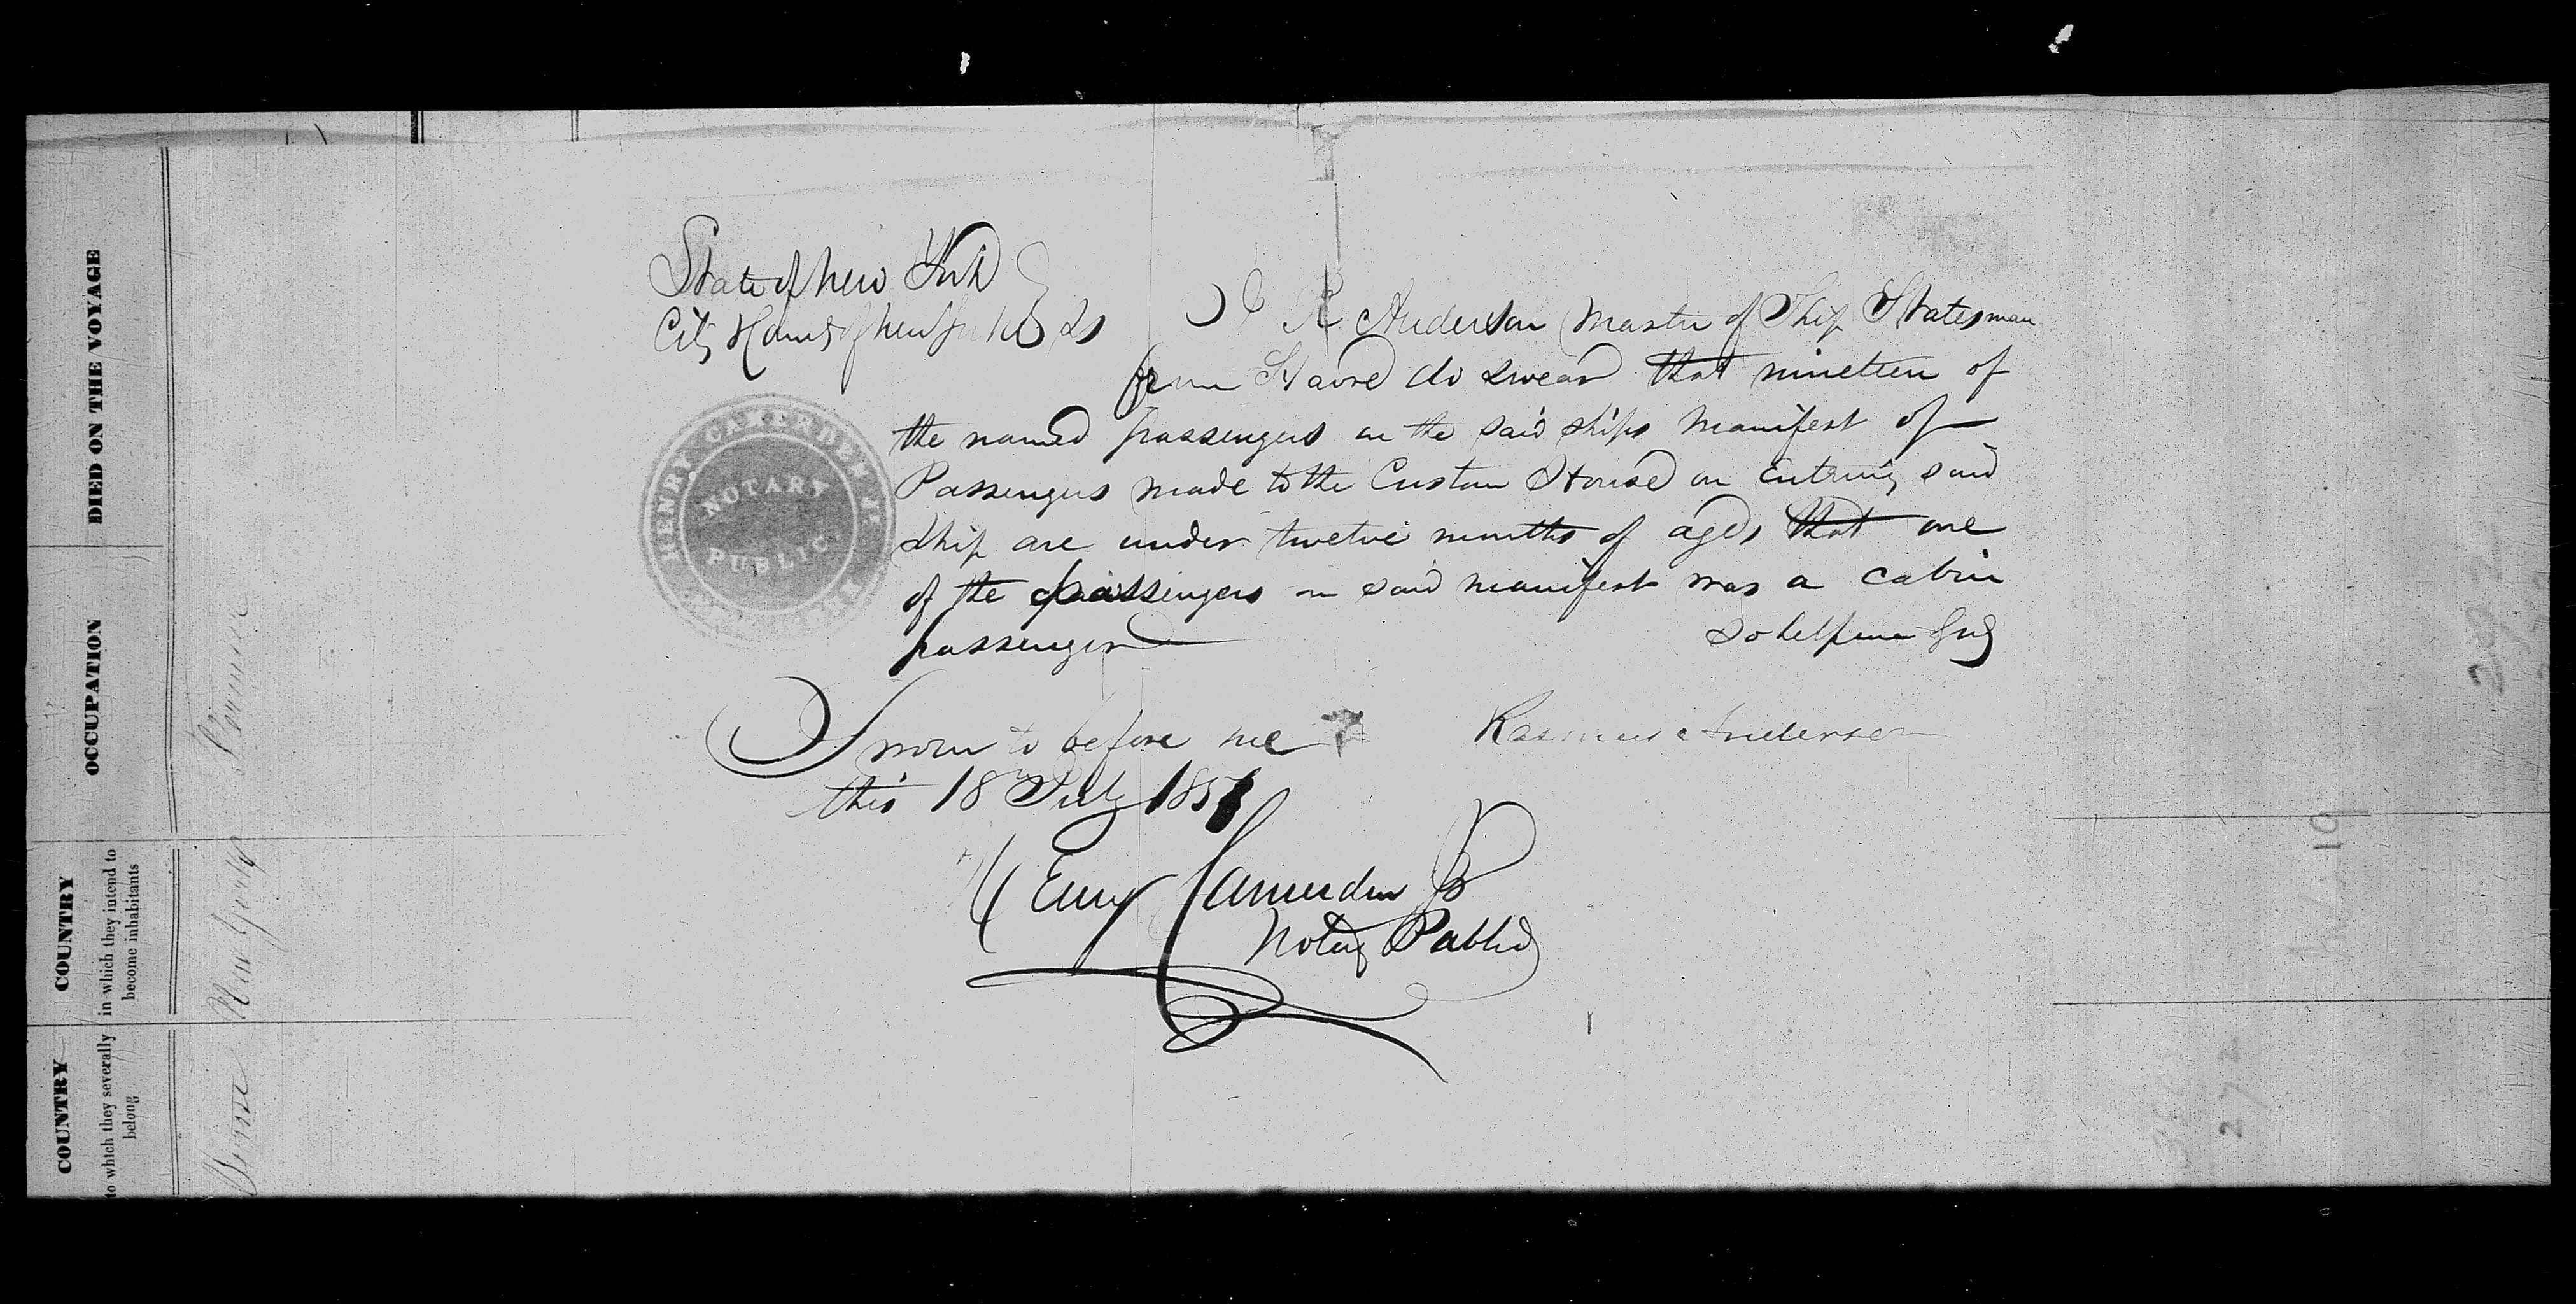 State of New York
City & County of New York } ss
I R Anderson Master of Ship Statesman
from Havre do swear that nineteen of
the named passengers on the said ships Manifest of
Passengers made to the Custom House on Entring said
Ship are under twelve months of age, that one
of the passengers on said manifest was a cabin
passenger
So help me God
Rasmus Anderson
Sworn to before me
this 18th July 1851
Henry Camerden Jr
Notary Public
HENRY CAMERDEN Jr.
NOTARY
PUBLIC
DIED ON THE VOYAGE
OCCUPATION
COUNTRY
in which they intend to
become inhabitants
COUNTRY
to which they severally
belong
New York
19
272
29